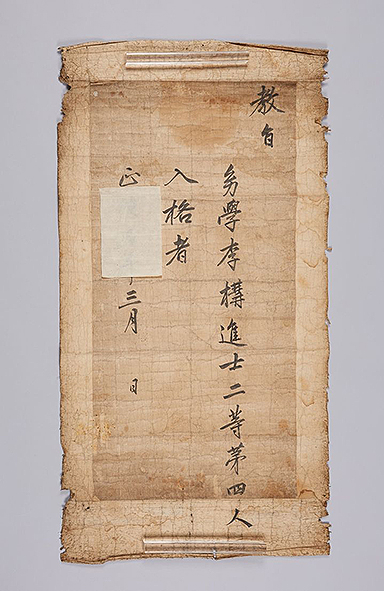 教旨
幼學李構進士二等第四人
入格者
正三月 日